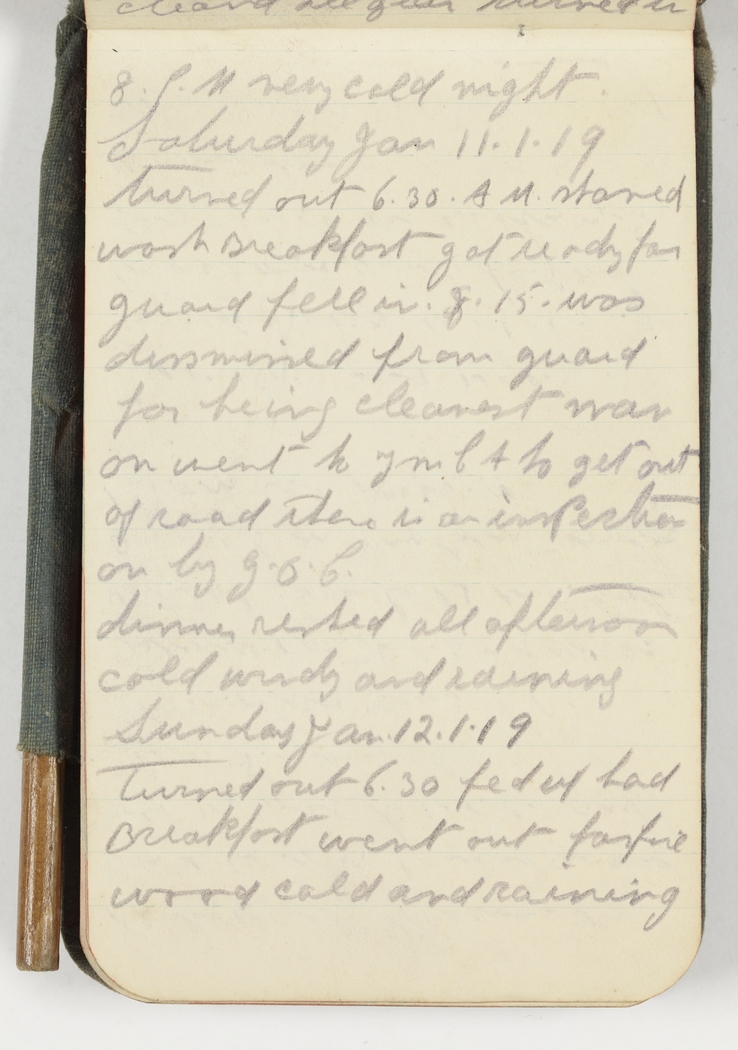 cleand all gear turned in
8. P. M very cold night.
Saturday Jan 11.1.19
turned out 6.30. A M. shaved
wash Breakfast got ready for
guard fell in. 8. 15. was
dissmissed from guard
for being cleanest man
on went to YMCA to get out
of road there is an inspection
on by G.O.C.
dinner rested all afternoon
cold windy and raining
Sunday Jan. 12.1.19
Turned out 6.30 fed up had
Breakfast went out for fire
wood cold and raining